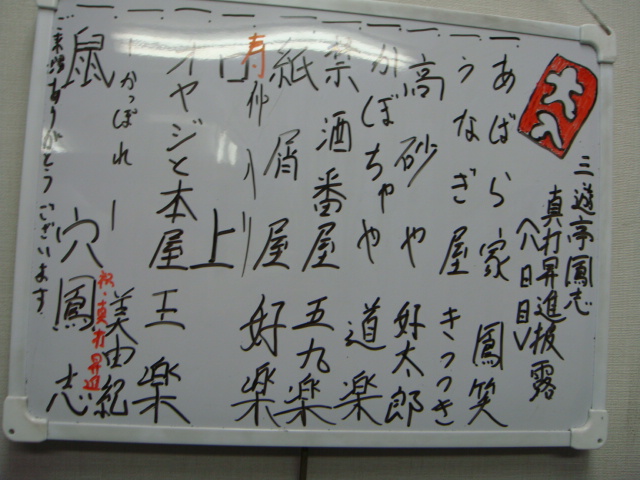 大入
三遊亭鳳志
真打昇進披露
八日目
一 あばら家 鳳笑
一 うなぎ屋 きつつき
一 高砂や 好太郎
一 かぼちゃや 道楽
一 禁酒番屋 五九楽
一 紙屑屋 好楽
寿 仲入り
口上
一 オヤジと本屋 王楽
一 かっぽれ 一 美由紀
祝・真打昇進
一 鼠穴 鳳志
ご来場ありがとうございます